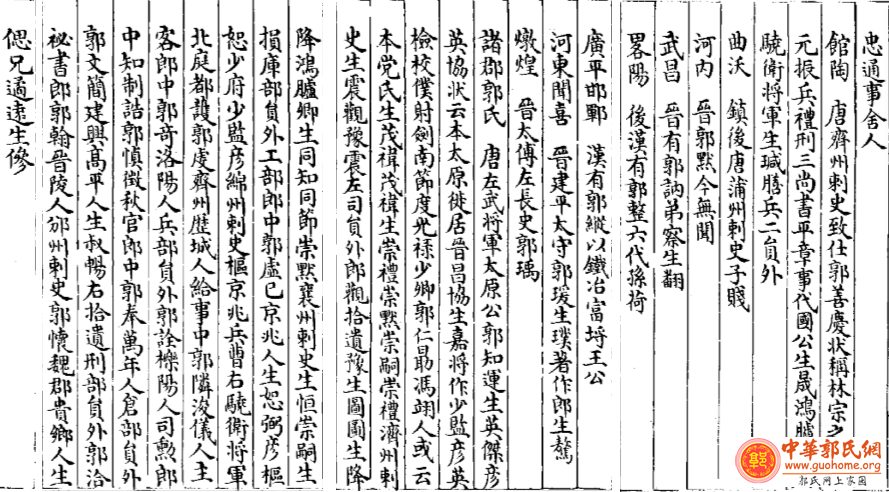 忠通事舍人
館陶　唐齊州刺史致仕郭善慶狀稱林宗之
元振兵禮刑三尚書平章事代國公生晟鴻臚
驍衛將軍生瑊膳兵二員外
曲沃　鎮後唐蒲州刺史子賤
河内　晉郭默今無聞
武昌　晉有郭訥弟察生翻
畧陽　後漢有郭整六代孫荷
廣平邯鄲　漢有郭縱以鐵冶富埒王公
河東聞喜　晉建平太守郭瑗生璞著作郎生驁
燉煌　晉太傅左長史郭瑀
諸郡郭氏　唐左武將軍太原公郭知運生英傑彦
英協狀云本太原徙居晉昌協生嘉將作少監彦英
檢校僕射劍南節度光禄少卿郭仁勗馮翊人或云
本党氏生茂禕茂禕生崇禮崇默崇嗣崇禮濟州刺
史生震觀豫震左司員外郎觀拾遺豫生圖圖生降
降鴻臚卿生同知同節崇默襄州刺史生恒崇嗣生
損庫部員外工部郎中郭虛已京兆人生恕弼彦樞
恕少府少監彦綿州刺史樞京兆兵曹右驍衛將軍
北庭都護郭虔齊州歷城人給事中郭隣浚儀人主
客郎中郭奇洛陽人兵部員外郭詮櫟陽人司勲郎
中知制誥郭慎徴秋官郎中郭奉萬年人倉部員外
郭文簡建興高平人生叔暢右拾遺刑部員外郭洽
祕書郎郭翰晉陵人邠州刺史郭懷魏郡貴鄉人生
偲兄適遠生俢
中華郭氏網
www.guohome.org
郭氏网上家園